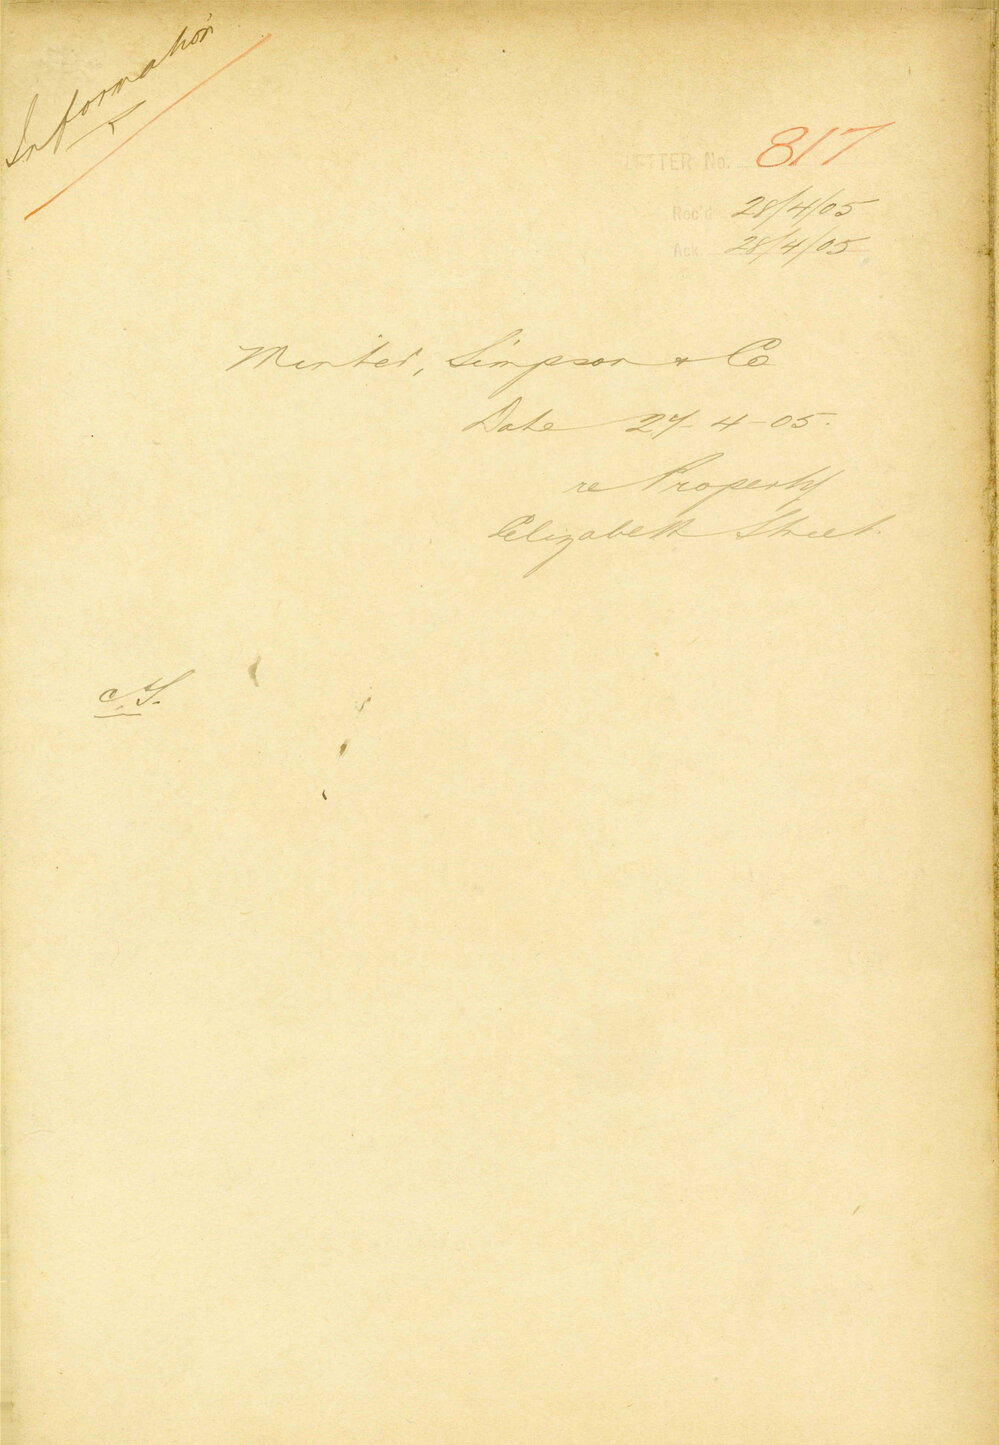 Information
LETTER No. 817
Rec'd 28/4/05
Ack. 28/4/05
Minter, Simpson & Co
Date 27-4-05.
re Property
Elizabeth Street.